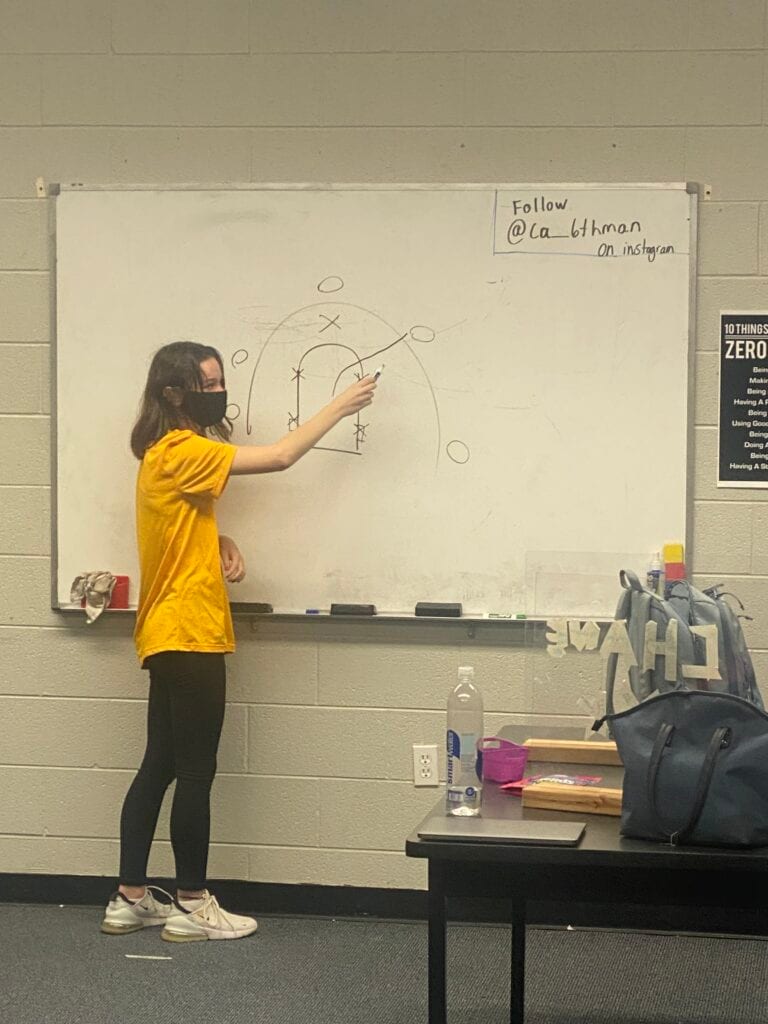 Follow
@ca_6thman
On instagram
10 THINGS
ZERO
Bein
Makin
Being
Having A P
Being
Using Good
Being
Doing A
Being
Having A St
smartwater